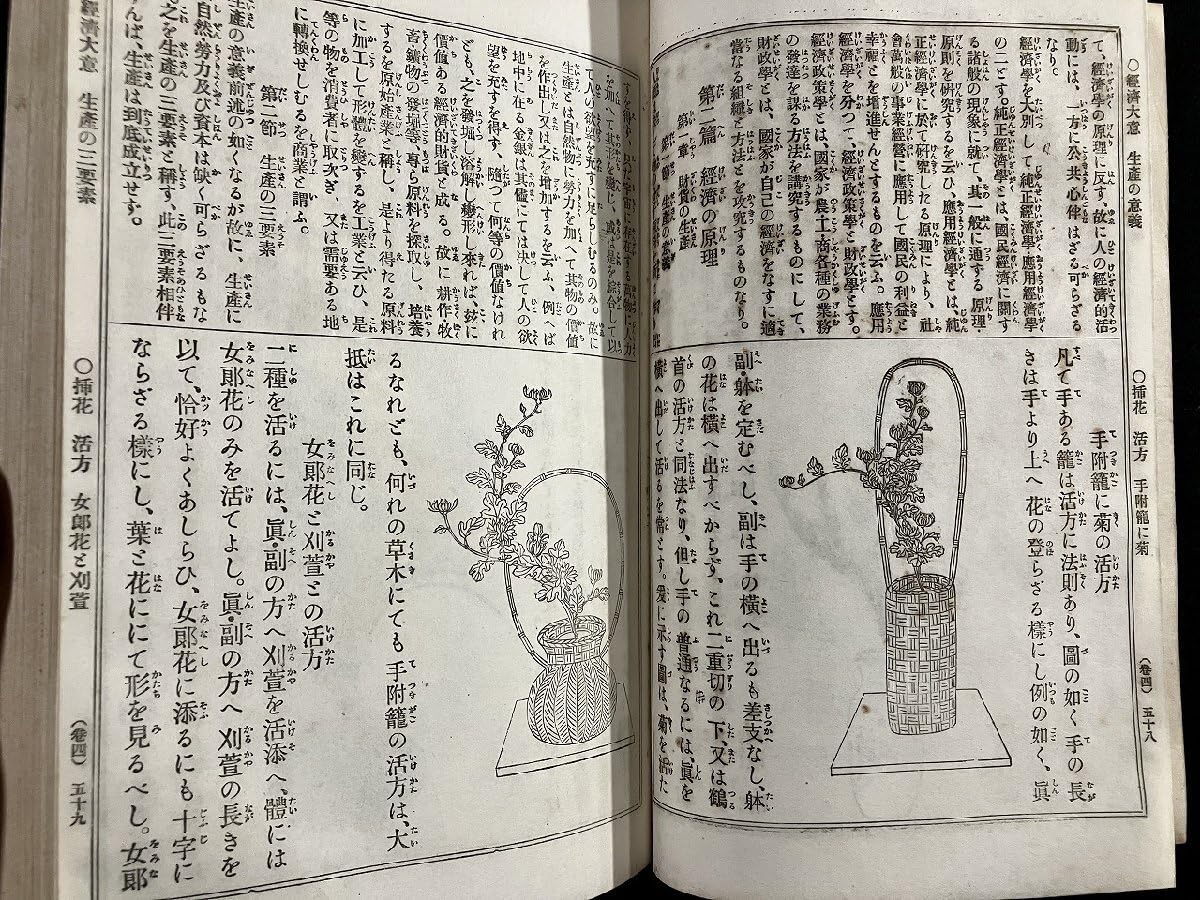 ○經濟大意　生產の意義
て、經濟學の原理に反す、故に人の經濟的活
動には、一方に公共心伴はざる可らざる
なり。
經濟學を大別して純正經濟學、應用經濟學
の二とす。純正經濟學とは、國民經濟に關す
る諸般の現象に就て、其一般に通する原理・
原則を研究するを云ひ、應用經濟學とは、純
正經濟學に於て研究したる原理により、社
會萬般の事業經營に應用して國民の利益と
幸福とを增進せんとするものを云ふ。應用
經濟學を分つて、經濟政策學と財政學とす。
經濟政策學とは、國家が農工商各種の業務
の發達を謀る方法を講究するものにして、
財政學とは、國家が自己の經濟をなすに適
當なる組織と方法とを攻究するものなり。
第二篇　經濟の原理
第一章　財貨の生產
○挿花　活方　手附籠に菊
（卷四）五十八
手附籠に菊の活方
凡て手ある籠は活方に法則あり、圖の如く手の長
きは手より上へ花の登らざる樣にし例の如く、眞
副・躰を定むべし、副は手の橫へ出るも差支なし、躰
の花は橫へ出すべからず、これ二重切の下、又は鶴
首の活方と同法なり、但し手の普通なるには、眞を
橫へ出して活るを常とす。爰に示す圖は、菊を活た
て人の欲望を充すに足らしむるのみ。故に
生產とは自然物に勞力を加へて其物の價値
を作出し又は之を增加するを云ふ、例へば
地中に在る金銀は其儘にては決して人の欲
望を充すを得ず、隨つて何等の價値なけれ
ども、之を發堀し溶解し變形し來れば、玆に
價値ある經濟的財貨と成る。故に耕作牧
畜鑛物の發堀等、專ら原料を採取し、培養
するを原始產業と稱し、是より得たる原料
に加工して形體を變するを工業と云ひ、是
等の物を消費者に取次ぎ、又は需要ある地
に轉換せしむるを商業と謂ふ。
第二節　生產の三要素
生產の意義前述の如くなるが故に、生產に
自然勞力及び資本は缺く可らざるものな
之を生產の三要素と稱す、此三要素相伴
んば、生產は到底成立せず。
經濟大意　生產の三要素
るなれども、何れの草木にても手附籠の活方は、大
抵はこれに同じ。
女郞花と刈萱との活方
二種を活るには、眞・副の方へ刈萱を活添へ、體には
女郞花のみを活てよし。眞・副の方へ刈萱の長きを
以て、恰好よくあしらひ、女郞花に添るにも十字に
ならざる樣にし、葉と花にて形を見るべし。女郞
○挿花　活方　女郞花と刈萱
（卷四）五十九